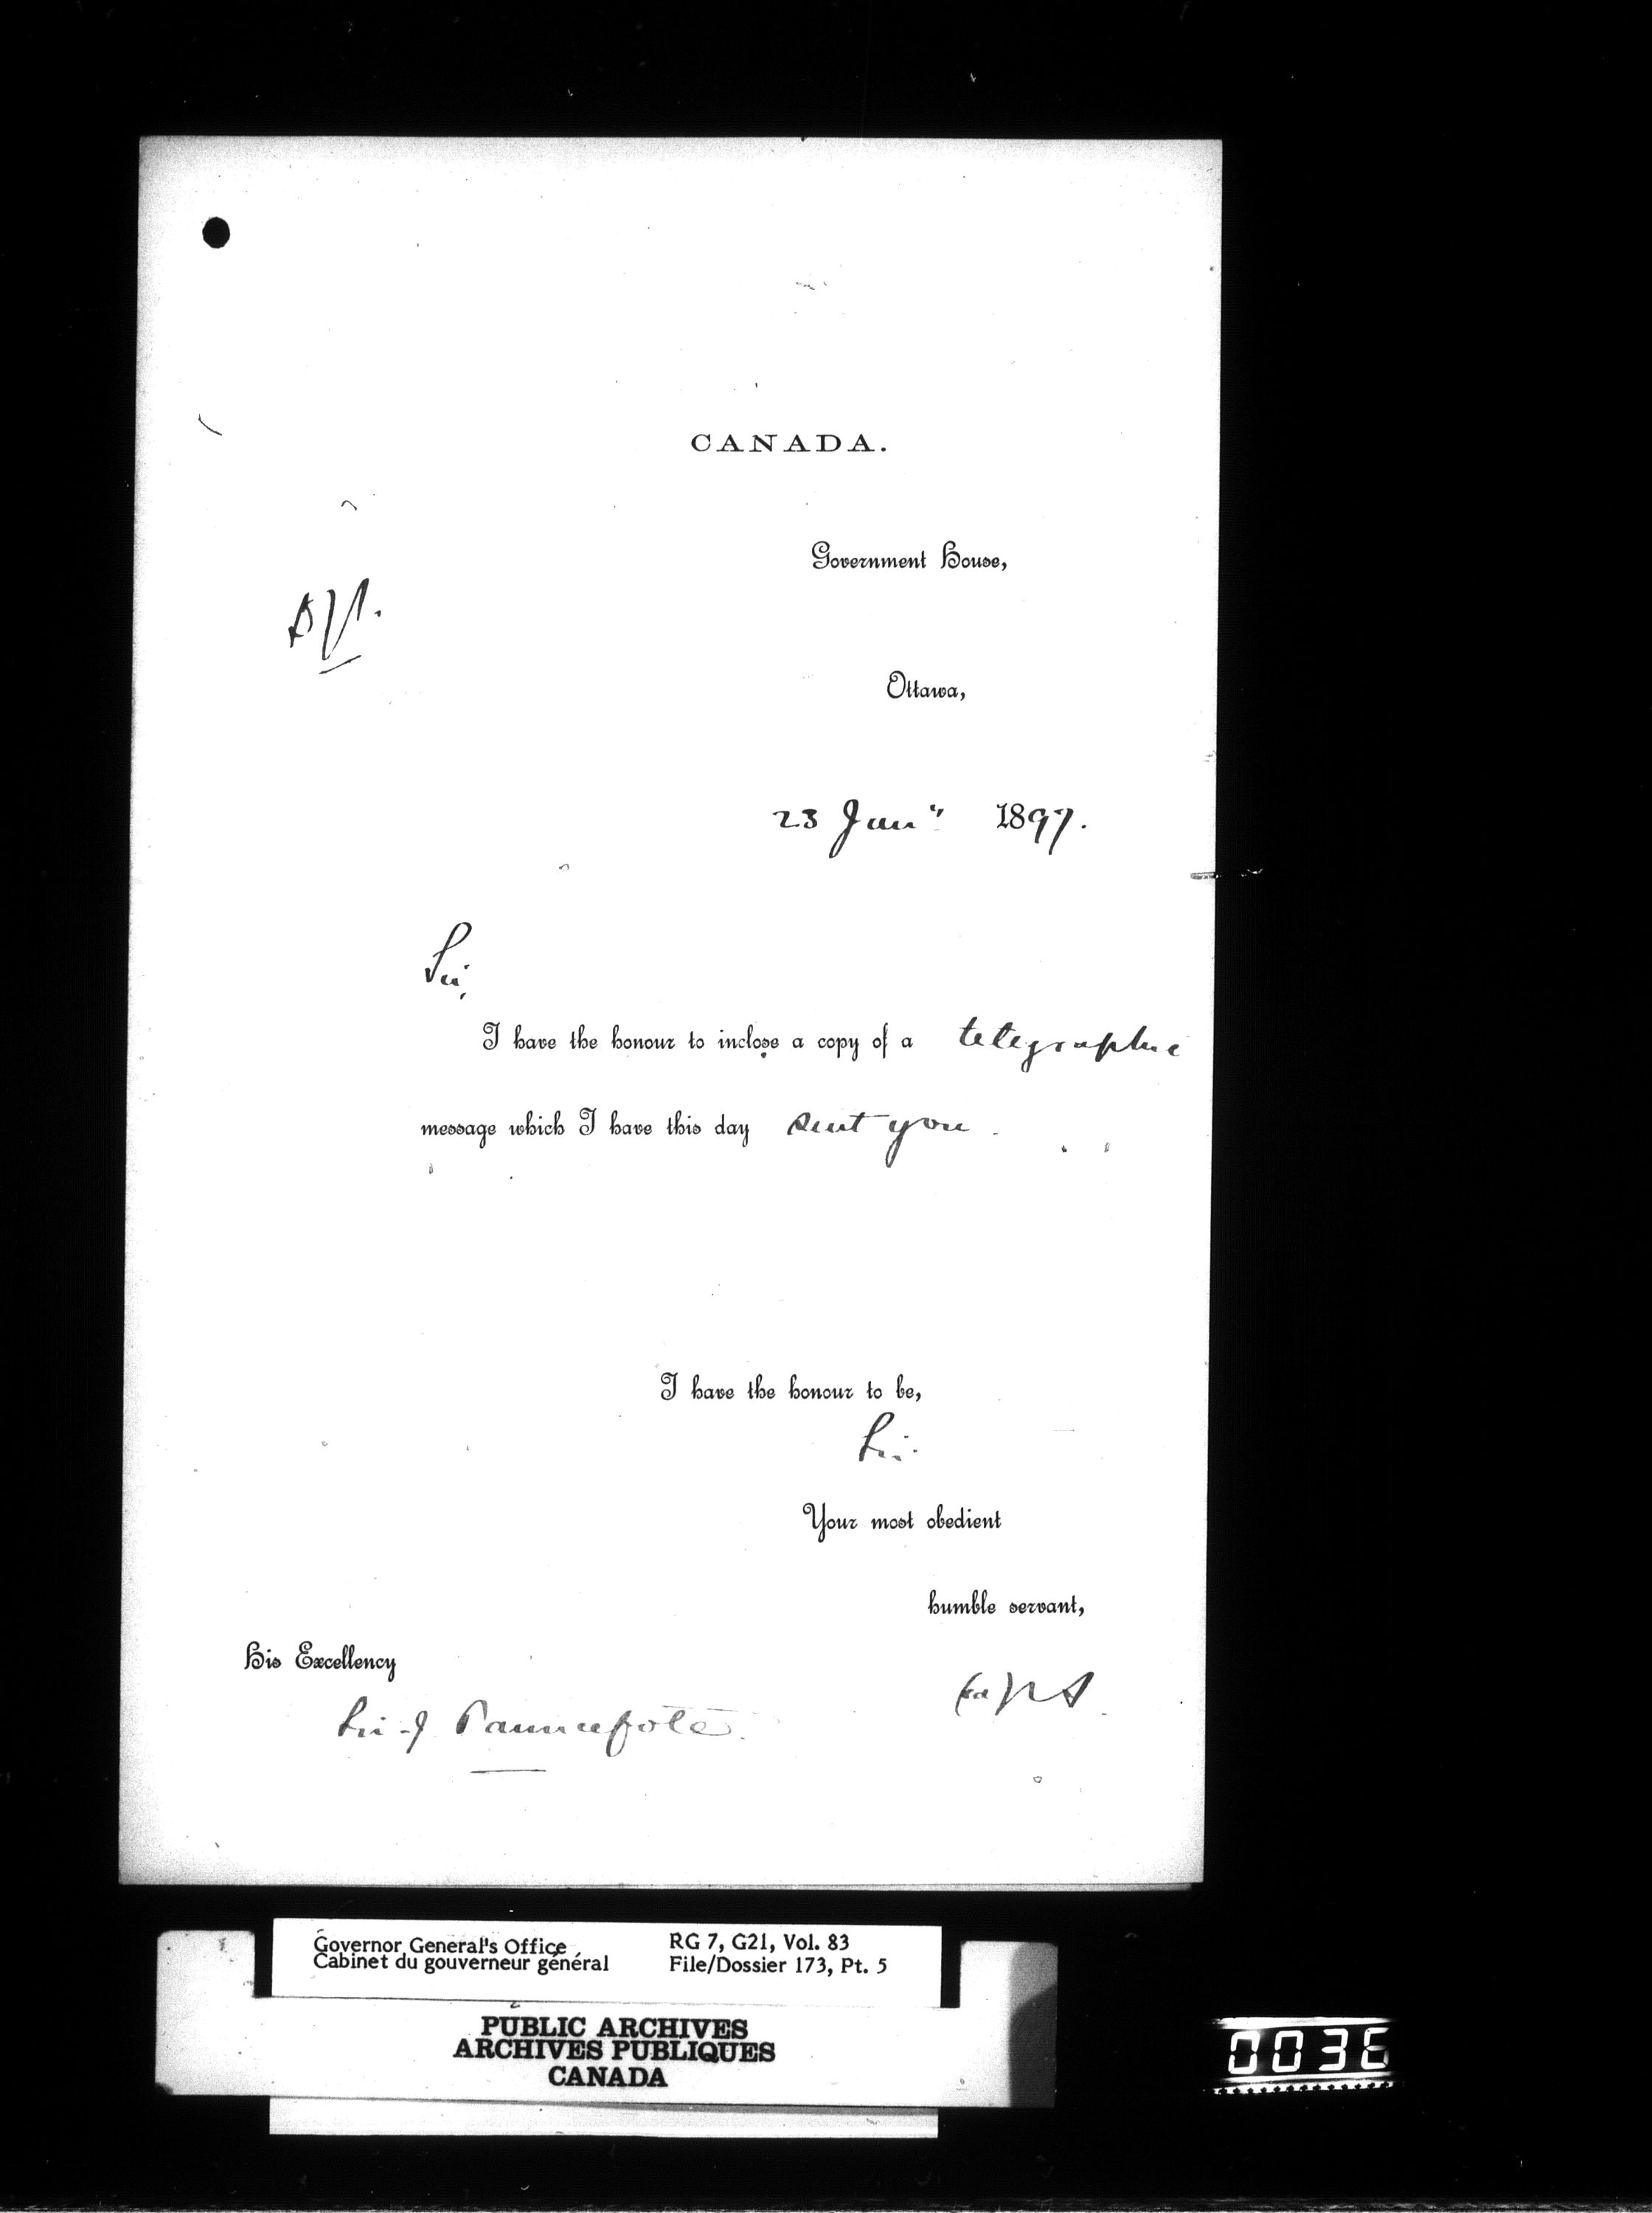 CANADA.
Government House,
Ottawa,
23 Jany 1897.
Sir,
I have the honour to inclose a copy of a telegraphic
message which I have this day sent you.
I have the honour to be,
Sir.
Your most obedient
humble servant,
His Excellency
Sir J. Pauncefote.
Governor General's Office
Cabinet du gouverneur général
RG 7, G21, Vol. 83
File/Dossier 173, Pt. 5
PUBLIC ARCHIVES
ARCHIVES PUBLIQUES
CANADA